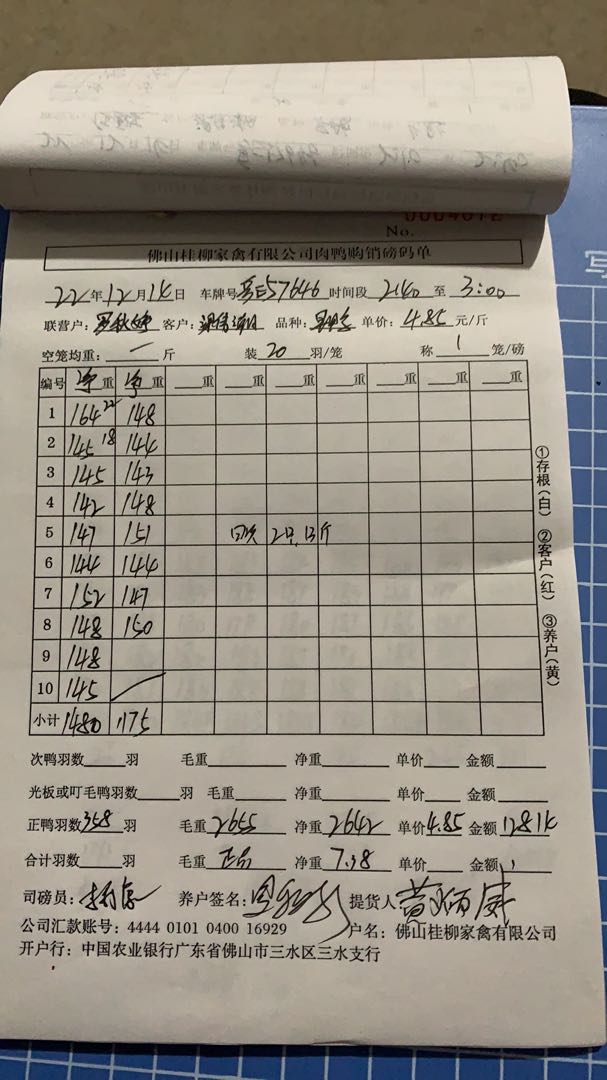 No.
佛山桂柳家禽有限公司肉鸭购销磅码单
22年12月14日 车牌号 57646 时间段 2:40 至 3:00
联营户: 客户: 品种: 单价: 4.85 元/斤
空笼均重: 一 斤 装 20 羽/笼 称 1 笼/磅
编号 净重 净重 重 重 重 重 重 重 重
1 164 22 148
2 145 18 144
3 145 143
4 142 148
5 147 151 2只, 13斤
6 144 144
7 152 147
8 148 150
9 148
10 145
小计 1480 1175
①存根(白) ②客户(红) ③养户(黄)
次鸭羽数 羽 毛重 净重 单价 金额
光板或叮毛鸭羽数 羽 毛重 净重 单价 金额
正鸭羽数 358 羽 毛重 2655 净重 2642 单价 4.85 金额 12814
合计羽数 羽 毛重 净重 7.38 单价 金额
司磅员: 养户签名: 提货人 黄 威
公司汇款账号: 4444 0101 0400 16929 户名: 佛山桂柳家禽有限公司
开户行: 中国农业银行广东省佛山市三水区三水支行